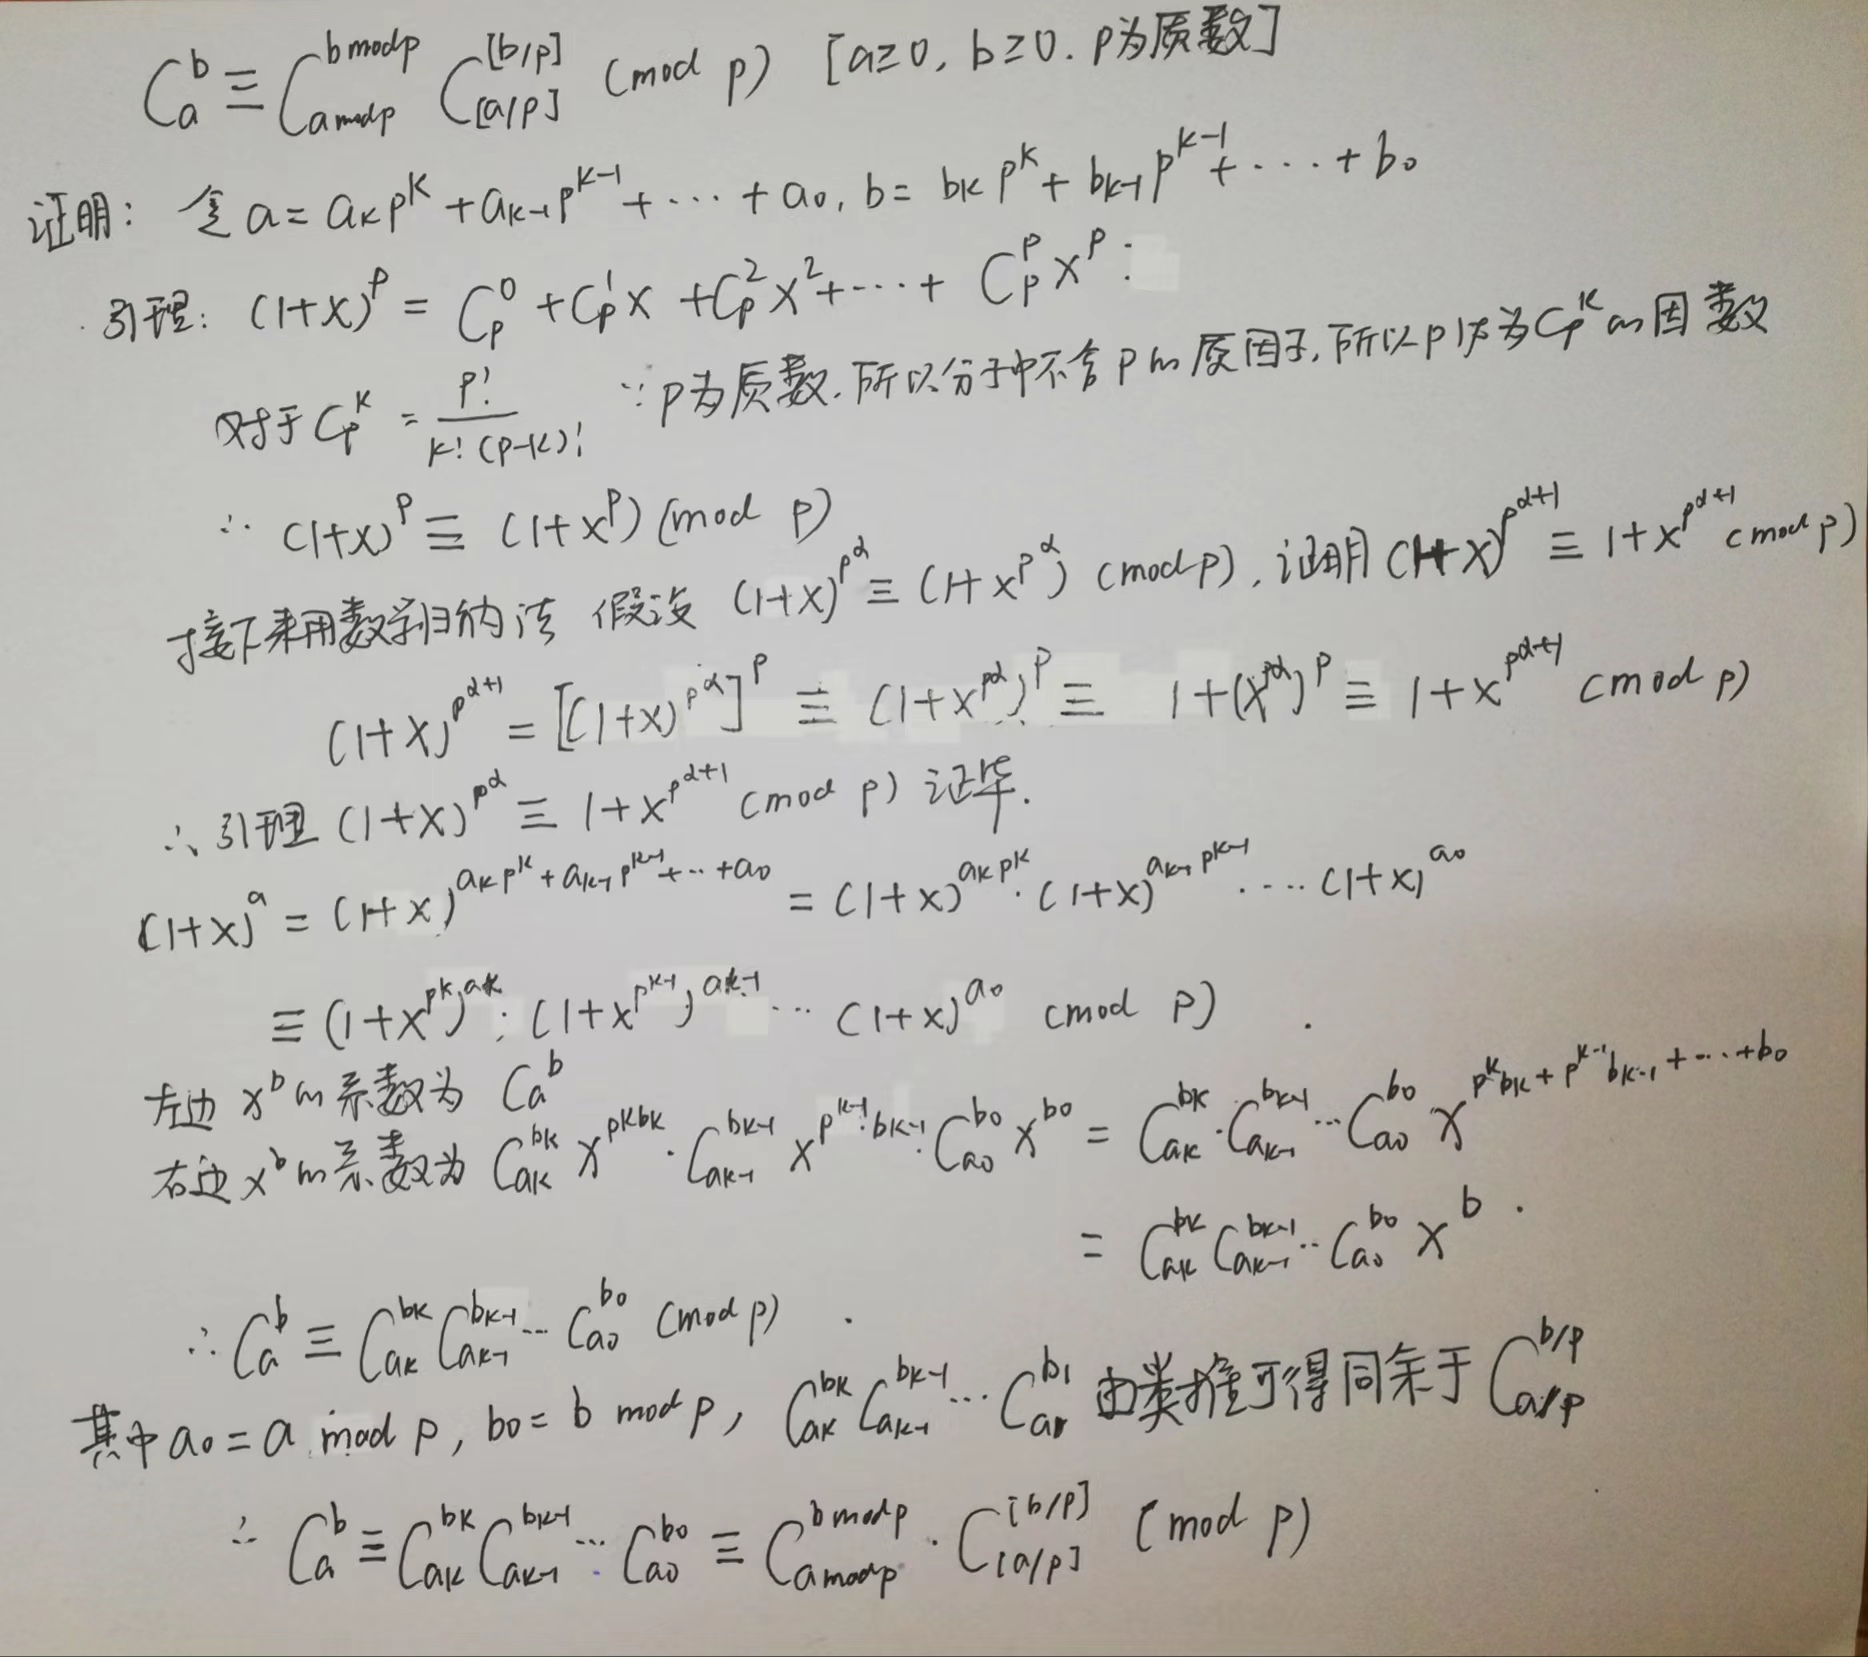 C_a^b ≡ C_{a mod p}^{b mod p} C_{[a/p]}^{[b/p]} (mod p) [a≥0, b≥0. p为质数]
证明: 令 a = a_k p^k + a_{k-1} p^{k-1} + ... + a_0, b = b_k p^k + b_{k-1} p^{k-1} + ... + b_0
引理: (1+x)^p = C_p^0 + C_p^1 x + C_p^2 x^2 + ... + C_p^p x^p :
对于 C_p^k = p! / k!(p-k)! ∵ p为质数. 所以分子中不含p的质因子, 所以p依为C_p^k的因数
∴ (1+x)^p ≡ (1+x^p) (mod p)
接下来用数学归纳法 假设 (1+x)^{p^α} ≡ (1+x^{p^α}) (mod p), 证明 (1+x)^{p^{α+1}} ≡ 1+x^{p^{α+1}} (mod p)
(1+x)^{p^{α+1}} = [(1+x)^{p^α}]^p ≡ (1+x^{p^α})^p ≡ 1+(x^{p^α})^p ≡ 1+x^{p^{α+1}} (mod p)
∴ 引理 (1+x)^{p^α} ≡ 1+x^{p^{α+1}} (mod p) 证毕.
(1+x)^a = (1+x)^{a_k p^k + a_{k-1} p^{k-1} + ... + a_0} = (1+x)^{a_k p^k} · (1+x)^{a_{k-1} p^{k-1}} .... (1+x)^{a_0}
≡ (1+x^{p^k})^{a_k} · (1+x^{p^{k-1}})^{a_{k-1}} ... (1+x)^{a_0} (mod p)
左边 x^b 的系数为 C_a^b
右边 x^b 的系数为 C_{a_k}^{b_k} x^{p^k b_k} · C_{a_{k-1}}^{b_{k-1}} x^{p^{k-1} b_{k-1}} : C_{a_0}^{b_0} x^{b_0} = C_{a_k}^{b_k} · C_{a_{k-1}}^{b_{k-1}} ... C_{a_0}^{b_0} x^{p^k b_k + p^{k-1} b_{k-1} + ... + b_0}
= C_{a_k}^{b_k} C_{a_{k-1}}^{b_{k-1}} .. C_{a_0}^{b_0} x^b .
∴ C_a^b ≡ C_{a_k}^{b_k} C_{a_{k-1}}^{b_{k-1}} ... C_{a_0}^{b_0} (mod p)
其中 a_0 = a mod p, b_0 = b mod p, C_{a_k}^{b_k} C_{a_{k-1}}^{b_{k-1}} ... C_{a_1}^{b_1} 由类推可得同余于 C_{a/p}^{b/p}
∴ C_a^b ≡ C_{a_k}^{b_k} C_{a_{k-1}}^{b_{k-1}} ... C_{a_0}^{b_0} ≡ C_{a mod p}^{b mod p} · C_{[a/p]}^{[b/p]} (mod p)